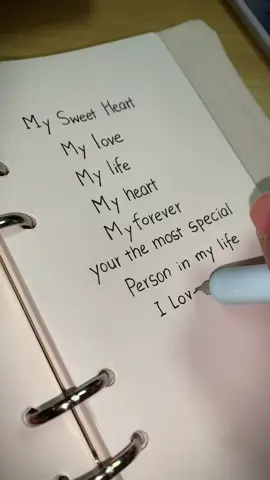 My Sweet Heart
My love
My life
My heart
My forever
your the most special
Person in my life
I Lov